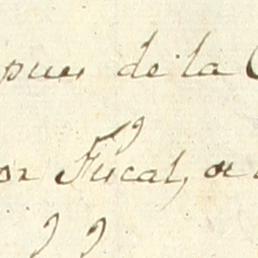 pues de la
or Fiscal,